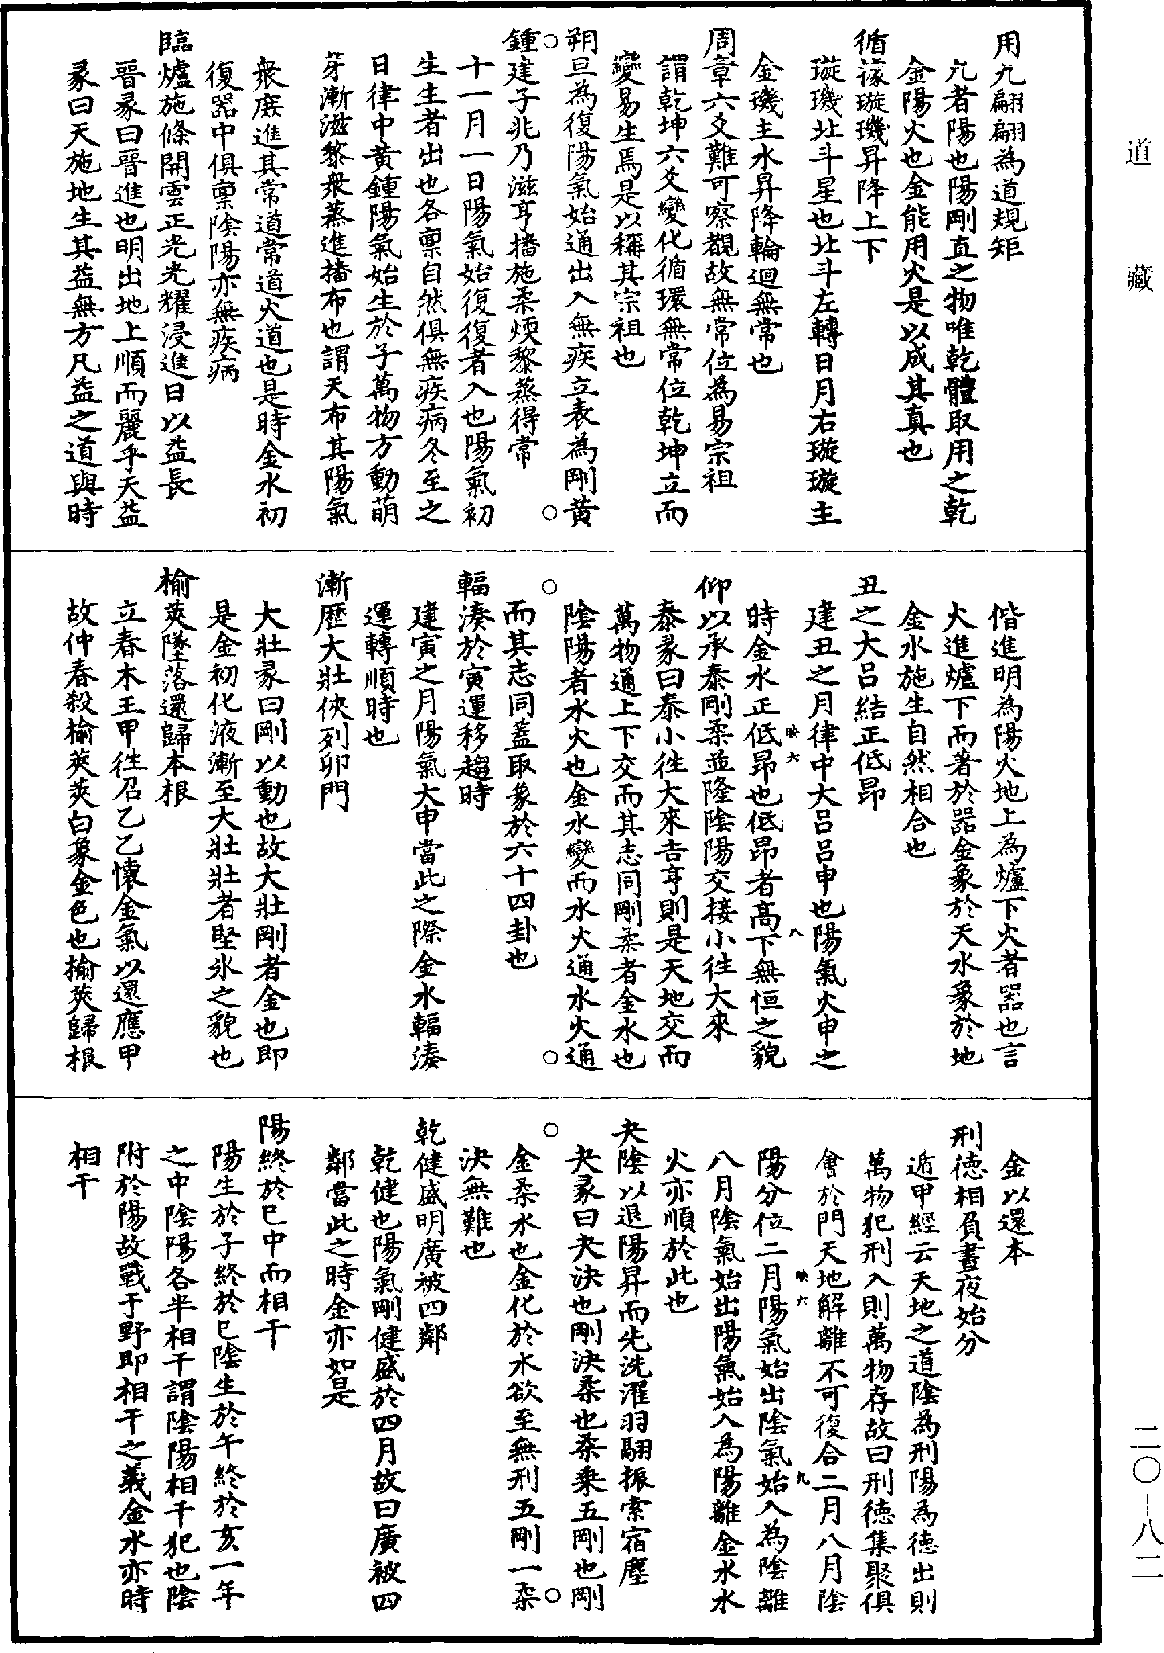 用九翩翩為道規矩
九者陽也陽剛直之物唯乾體取用之乾
金陽火也金能用火是以成其真也
循據璇璣昇降上下
璇璣北斗星也北斗左轉日月右璇璇主
金璣主水昇降輪迴無常也
周章六爻難可察觀故無常位為易宗祖
謂乾坤六爻變化循環無常位乾坤立而
變易生焉是以稱其宗祖也
朔旦為復陽氣始通出入無疾立表為剛黃
鍾建子兆乃滋亨播施柔煗黎蒸得常
十一月一日陽氣始復復者入也陽氣初
生生者出也各稟自然俱無疾病冬至之
日律中黃鍾陽氣始生於子萬物方動萌
芽漸滋黎衆蒸進播布也謂天布其陽氣
衆庶進其常道常道火道也是時金水初
復器中俱稟陰陽亦無疾病
臨爐施條開雲正光光耀浸進日以益長
晉彖曰晉進也明出地上順而麗乎天益
彖曰天施地生其益無方凡益之道與時
偕進明為陽火地上為爐下火者器也言
火進爐下而著於器金象於天水象於地
金水施生自然相合也
丑之大呂結正低昂
建丑之月律中大呂呂申也陽氣火申之
時金水正低昂也低昂者高下無恒之貌
仰以承泰剛柔並隆陰陽交接小往大來
泰彖曰泰小往大來吉亨則是天地交而
萬物通上下交而其志同剛柔者金水也
陰陽者水火也金水變而水火通水火通
而其志同蓋取象於六十四卦也
輻湊於寅運移趨時
建寅之月陽氣大申當此之際金水輻湊
運轉順時也
漸歷大壯俠列卯門
大壯彖曰剛以動也故大壯剛者金也即
是金初化液漸至大壯壯者堅氷之貌也
榆莢墜落還歸本根
立春木王甲往召乙乙懷金氣以還應甲
故仲春殺榆莢莢白象金色也榆莢歸根
金以還本
刑德相負晝夜始分
遁甲經云天地之道陰為刑陽為德出則
萬物犯刑入則萬物存故曰刑德集聚俱
會於門天地解離不可復合二月八月陰
陽分位二月陽氣始出陰氣始入為陰離
八月陰氣始出陽氣始入為陽離金水水
火亦順於此也
夬陰以退陽昇而先洗濯羽翮振索宿塵
夬彖曰夬決也剛決柔也柔乗五剛也剛
金柔水也金化於水欲至無刑五剛一柔
決無難也
乾健盛明廣被四鄰
乾健也陽氣剛健盛於四月故曰廣被四
鄰當此之時金亦如是
陽終於巳中而相干
陽生於子終於巳陰生於午終於亥一年
之中陰陽各半相干謂陰陽相干犯也陰
附於陽故戰于野即相干之義金水亦時
相干
道藏
二〇－八二